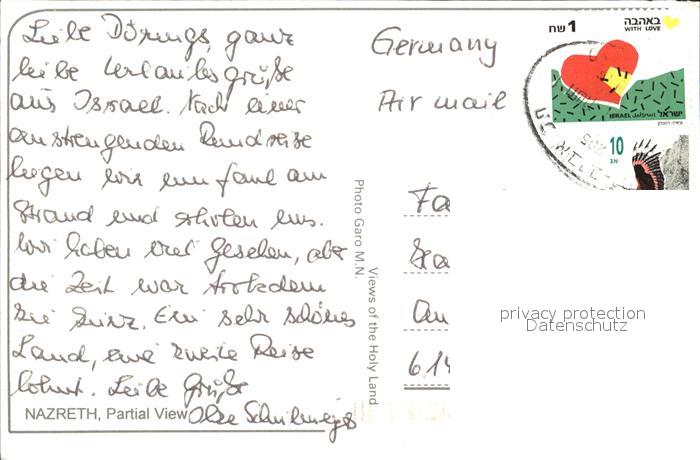 Liebe Dörings, ganz
liebe Urlaubsgrüße
aus Israel. Nach einer
anstrengenden Rundreise
liegen wir nun faul am
Strand und erholen uns.
Wir haben viel gesehen, aber
die Zeit war trotzdem
zu kurz. Ein sehr schönes
Land, eine zweite Reise
lohnt. Liebe Grüße
NAZRETH, Partial View
Photo Garo M.N.
Views of the Holy Land
Germany
Air mail
1 שח
באהבה
WITH LOVE
ISRAEL اسرائيل ישראל
10
אג
Fa
An
614
privacy protection
Datenschutz